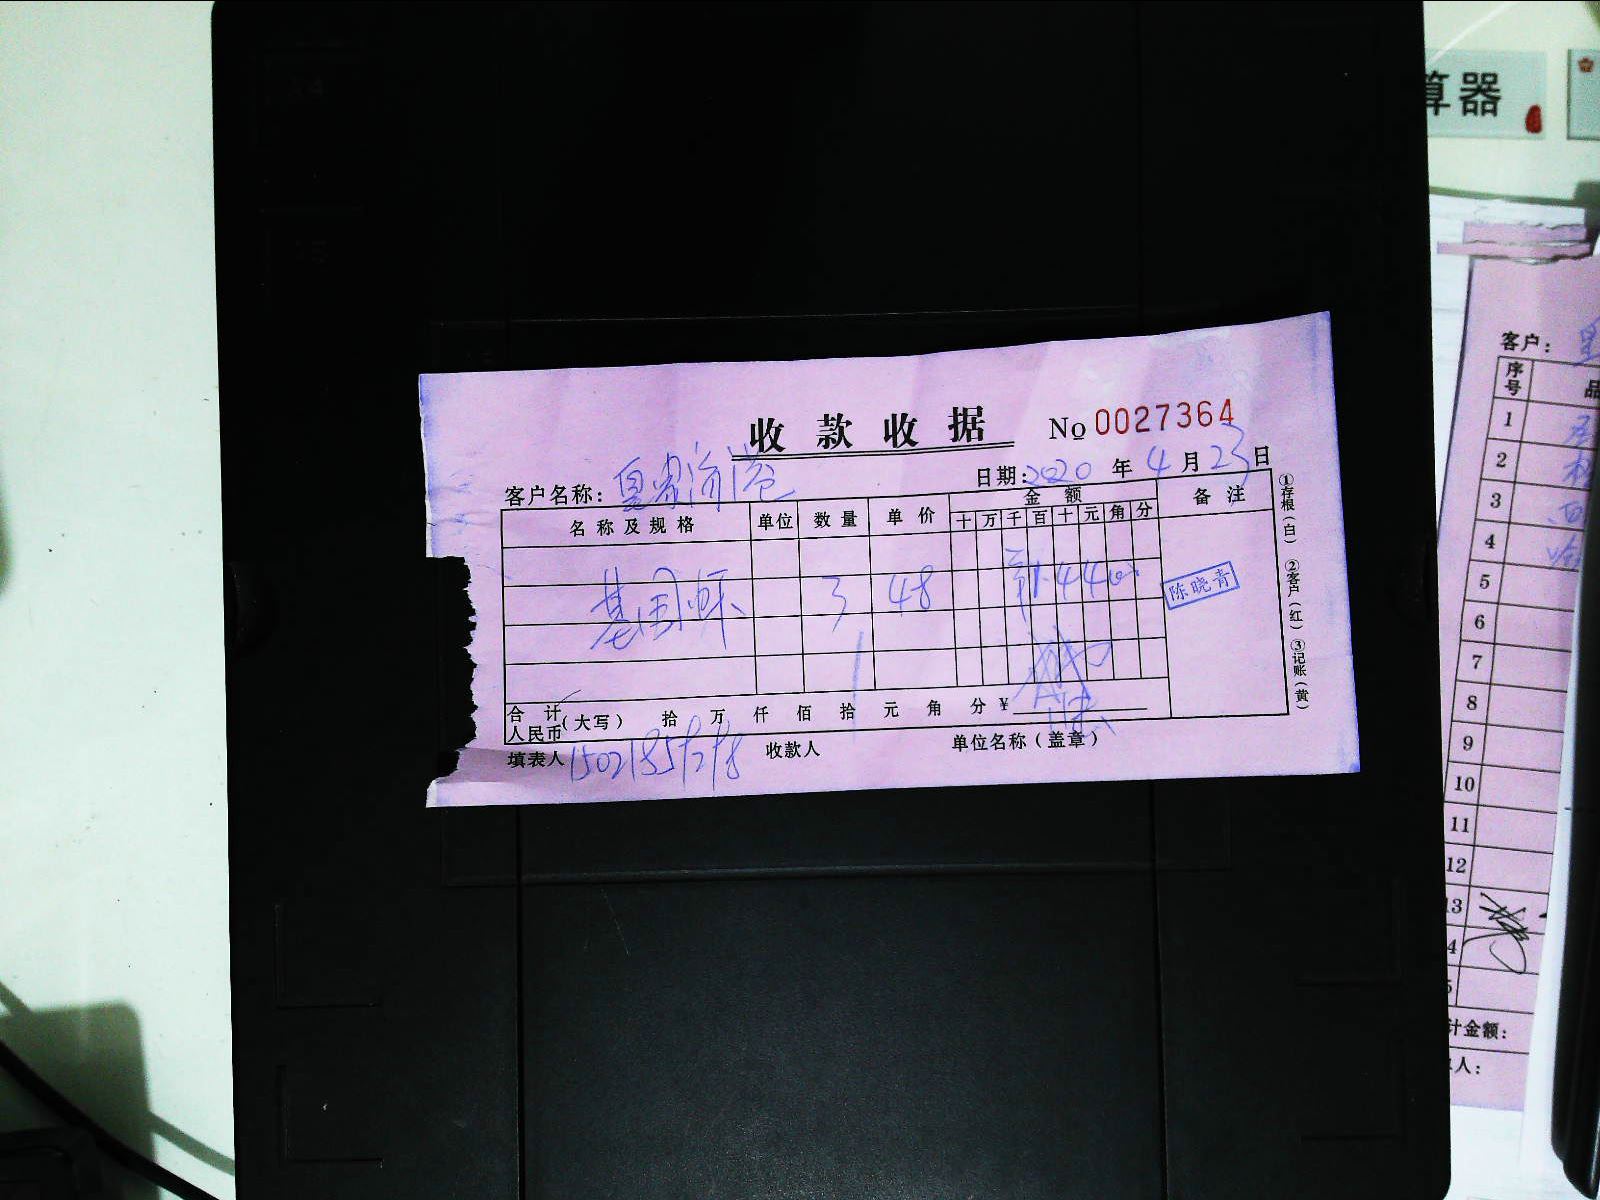 算器
收款收据 No 0027364
日期: 2020 年 4 月 23 日
客户名称:
名称及规格 单位 数量 单价 金额 备注
十 万 千 百 十 元 角 分
基围虾 3 48 144
陈晓青
合计人民币(大写) 拾 万 仟 佰 拾 元 角 分 ¥
填表人 收款人 单位名称(盖章)
①存根(白) ②客户(红) ③记账(黄)
客户:
序号 品
1
2
3
4
5
6
7
8
9
10
11
12
13
4
5
计金额:
人: